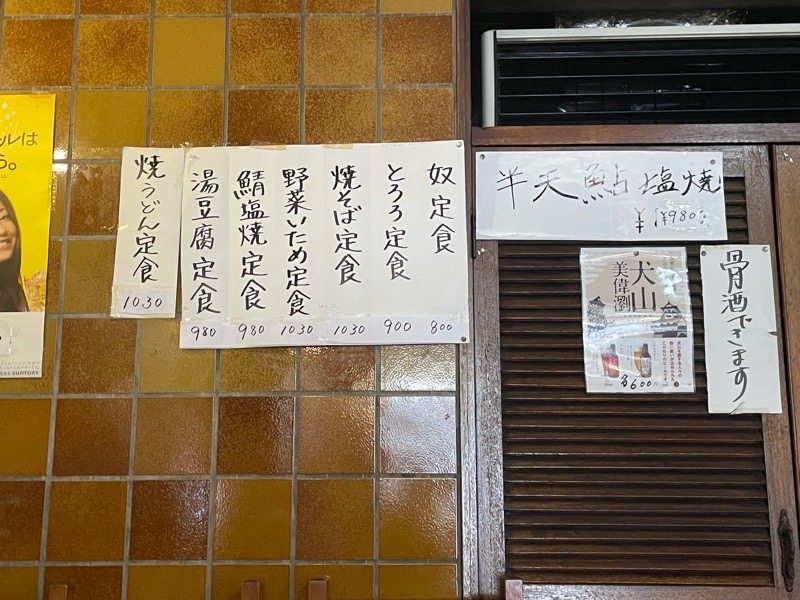 奴定食
800
とろろ定食
900
焼そば定食
1030
野菜いため定食
1030
鯖塩焼定食
980
湯豆腐定食
980
焼うどん定食
1030
半天鮎塩焼
¥980
犬山
美偉瀏
600
骨酒できます
ルは
SUNTORY